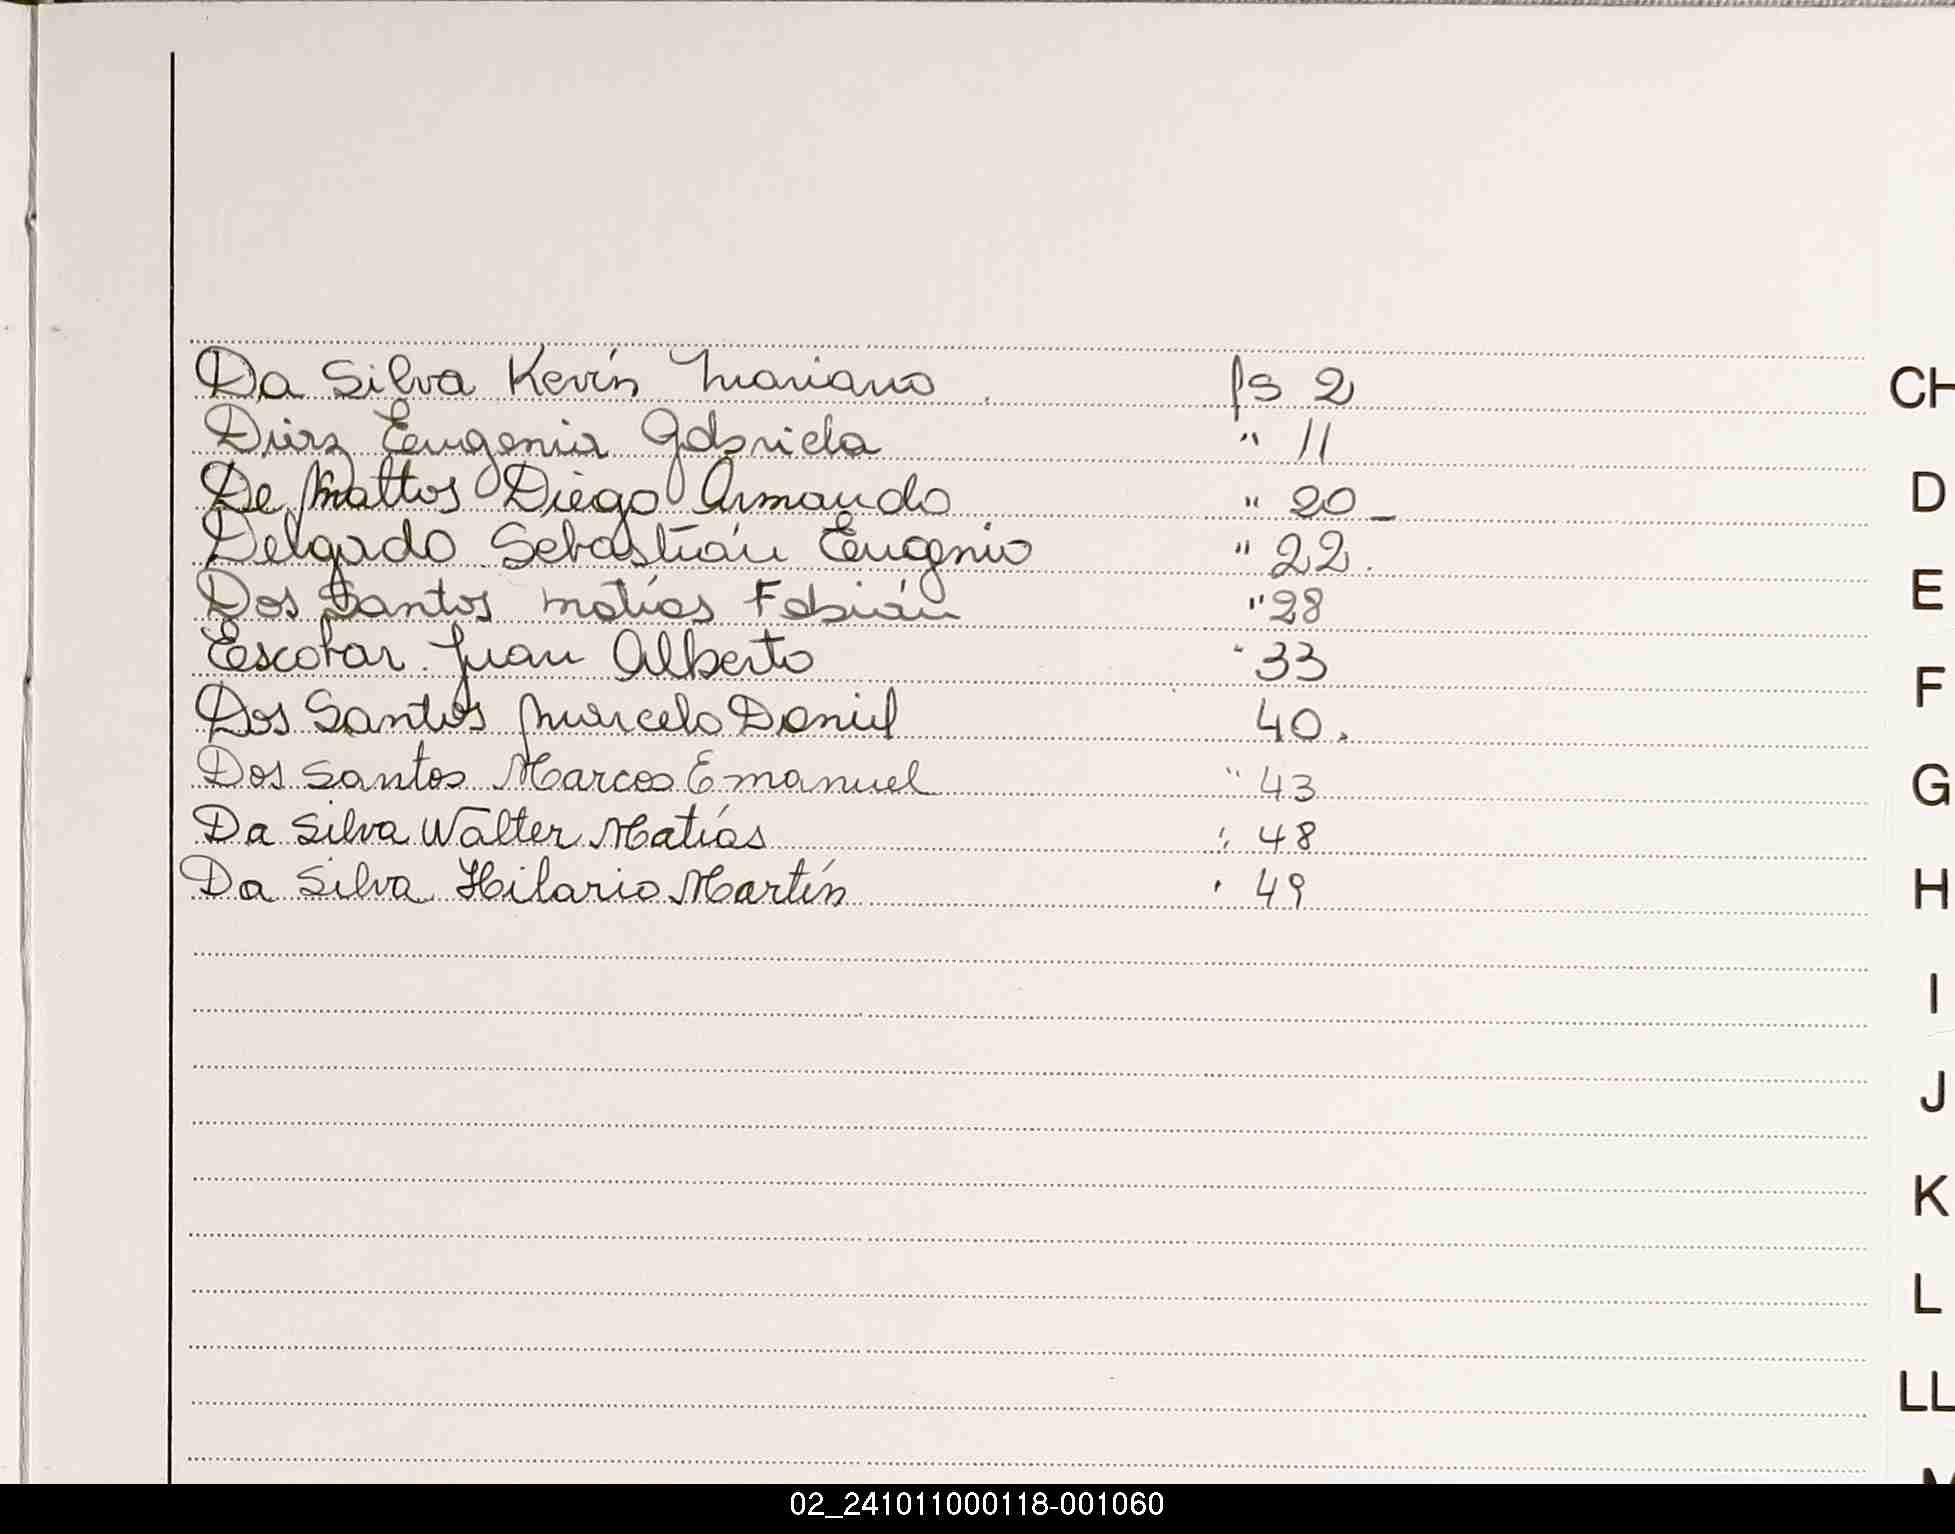 Da Silva Kevin Mariano . fs 2
Diaz Eugenia Gabriela " 11
De Mattos Diego Armando " 20 _
Delgado Sebastián Eugenio " 22 .
Dos Santos Matías Fabián " 28
Escobar Juan Alberto " 33
Dos Santos Marcelo Daniel 40 .
Dos Santos Marcos Emanuel " 43
Da Silva Walter Matías " 48
Da Silva Hilario Martín ' 49
CH
D
E
F
G
H
I
J
K
L
LL
M
02_241011000118-001060